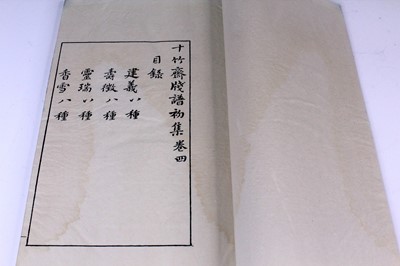 十竹齋牋譜初集卷四
目錄
建義八種
壽徵八種
靈瑞八種
香雪八種